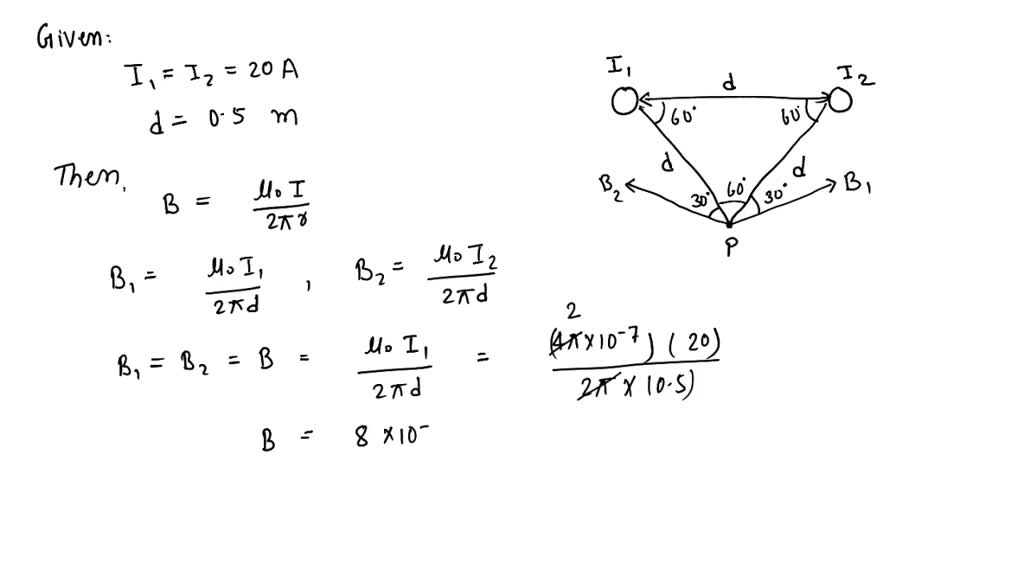 Given:
I₁ = I₂ = 20 A
d = 0.5 m
Then,
B = μ₀ I / 2πr
B₁ = μ₀ I₁ / 2πd , B₂ = μ₀ I₂ / 2πd
B₁ = B₂ = B = μ₀ I₁ / 2πd = 2 (4π×10⁻⁷) (20) / 2π × (0.5)
B = 8 ×10⁻
I₁
d
I₂
60°
60°
d
d
B₂
30°
60°
30°
B₁
P